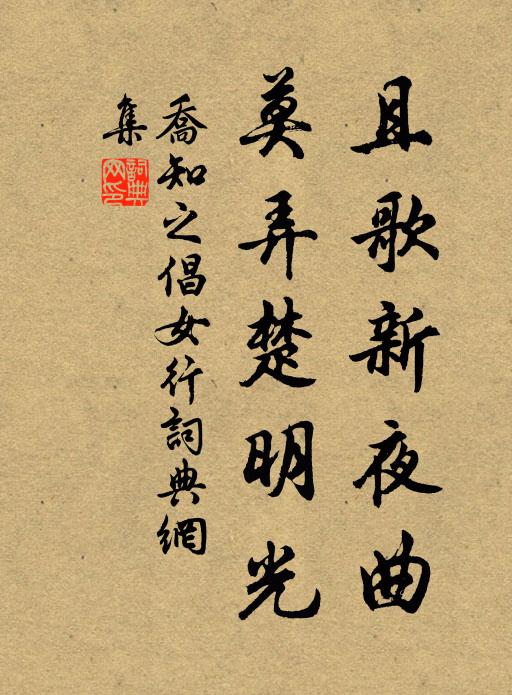 且歌新夜曲
莫弄楚明光
喬知之倡女行詞典網
集
詞典網印